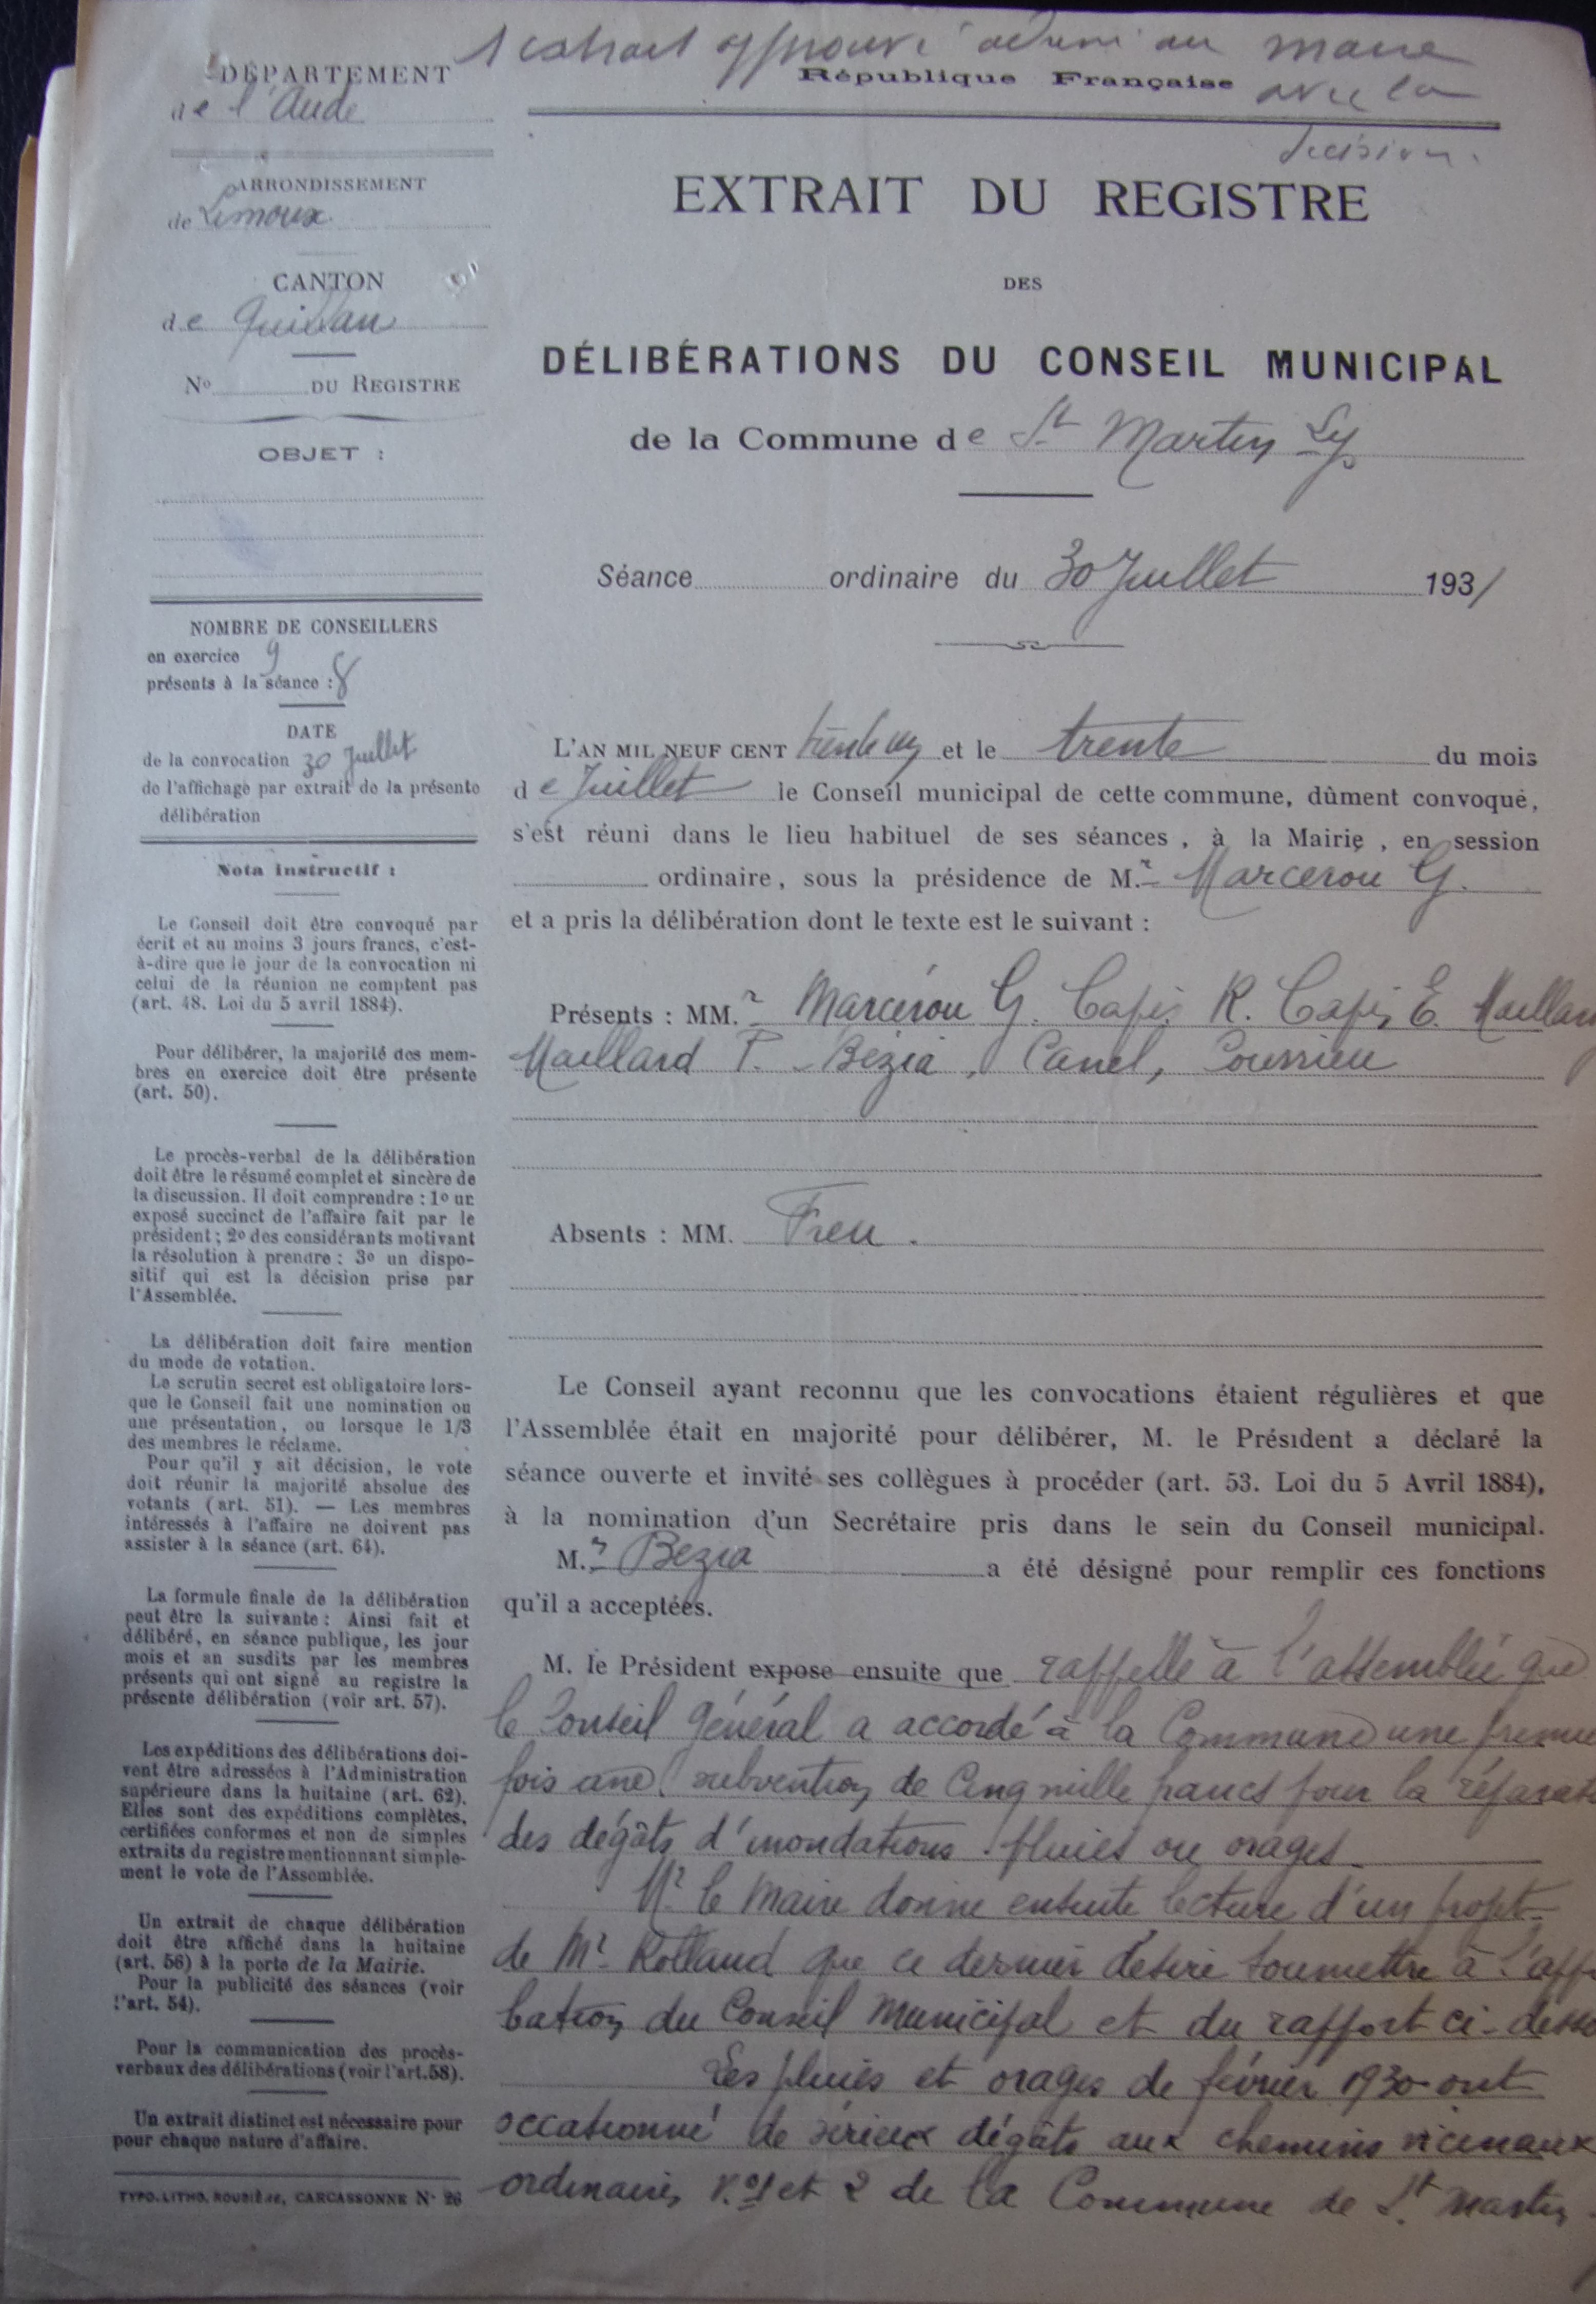 1 extrait approuvé au maire
avec la
décision.
République Française
DÉPARTEMENT
de l'Aude
ARRONDISSEMENT
de Limoux
CANTON
de Quillan
No DU REGISTRE
OBJET :
NOMBRE DE CONSEILLERS
en exercice 9
présents à la séance : 8
DATE
de la convocation 30 Juillet
de l'affichage par extrait de la présente
délibération
Nota instructif :
Le Conseil doit être convoqué par
écrit et au moins 3 jours francs, c'est-
à-dire que le jour de la convocation ni
celui de la réunion ne comptent pas
(art. 48. Loi du 5 avril 1884).
Pour délibérer, la majorité des mem-
bres en exercice doit être présente
(art. 50).
Le procès-verbal de la délibération
doit être le résumé complet et sincère de
la discussion. Il doit comprendre : 1o un
exposé succinct de l'affaire fait par le
président ; 2o des considérants motivant
la résolution à prendre : 3o un dispo-
sitif qui est la décision prise par
l'Assemblée.
La délibération doit faire mention
du mode de votation.
Le scrutin secret est obligatoire lors-
que le Conseil fait une nomination ou
une présentation, ou lorsque le 1/3
des membres le réclame.
Pour qu'il y ait décision, le vote
doit réunir la majorité absolue des
votants (art. 51). — Les membres
intéressés à l'affaire ne doivent pas
assister à la séance (art. 64).
La formule finale de la délibération
peut être la suivante : Ainsi fait et
délibéré, en séance publique, les jour
mois et an susdits par les membres
présents qui ont signé au registre la
présente délibération (voir art. 57).
Les expéditions des délibérations doi-
vent être adressées à l'Administration
supérieure dans la huitaine (art. 62).
Elles sont des expéditions complètes,
certifiées conformes et non de simples
extraits du registre mentionnant simple-
ment le vote de l'Assemblée.
Un extrait de chaque délibération
doit être affiché dans la huitaine
(art. 56) à la porte de la Mairie.
Pour la publicité des séances (voir
l'art. 54).
Pour la communication des procès-
verbaux des délibérations (voir l'art.58).
Un extrait distinct est nécessaire pour
pour chaque nature d'affaire.
TYPO.LITHO. ROUDIÈRE, CARCASSONNE No 26
EXTRAIT DU REGISTRE
DES
DÉLIBÉRATIONS DU CONSEIL MUNICIPAL
de la Commune de St Martin Lys
Séance ordinaire du 30 Juillet 1931
L'AN MIL NEUF CENT trente un et le trente du mois
de Juillet le Conseil municipal de cette commune, dûment convoqué,
s'est réuni dans le lieu habituel de ses séances, à la Mairie, en session
ordinaire, sous la présidence de M.r Marcérou G.
et a pris la délibération dont le texte est le suivant :
Présents : MM.r Marcérou G. R. E. Maillard
Maillard P. Bézia, Canel,
Absents : MM. Freu.
Le Conseil ayant reconnu que les convocations étaient régulières et que
l'Assemblée était en majorité pour délibérer, M. le Président a déclaré la
séance ouverte et invité ses collègues à procéder (art. 53. Loi du 5 Avril 1884),
à la nomination d'un Secrétaire pris dans le sein du Conseil municipal.
M.r Bezia a été désigné pour remplir ces fonctions
qu'il a acceptées.
M. le Président expose ensuite que rappelle à l'assemblée que
le Conseil Général a accordé à la Commune une premie
fois une subvention de Cinq mille francs pour la réparati
des dégâts d'inondations pluies ou orages.
Mr le Maire donne ensuite lecture d'un projet
de Mr Rolland que ce dernier désire soumettre à l'appr
bation du Conseil Municipal et du rapport ci-desso
Les pluies et orages de février 1930 ont
occasionné de sérieux dégâts aux chemins vicinaux
ordinaires No 1 et 2 de la Commune de St Martin